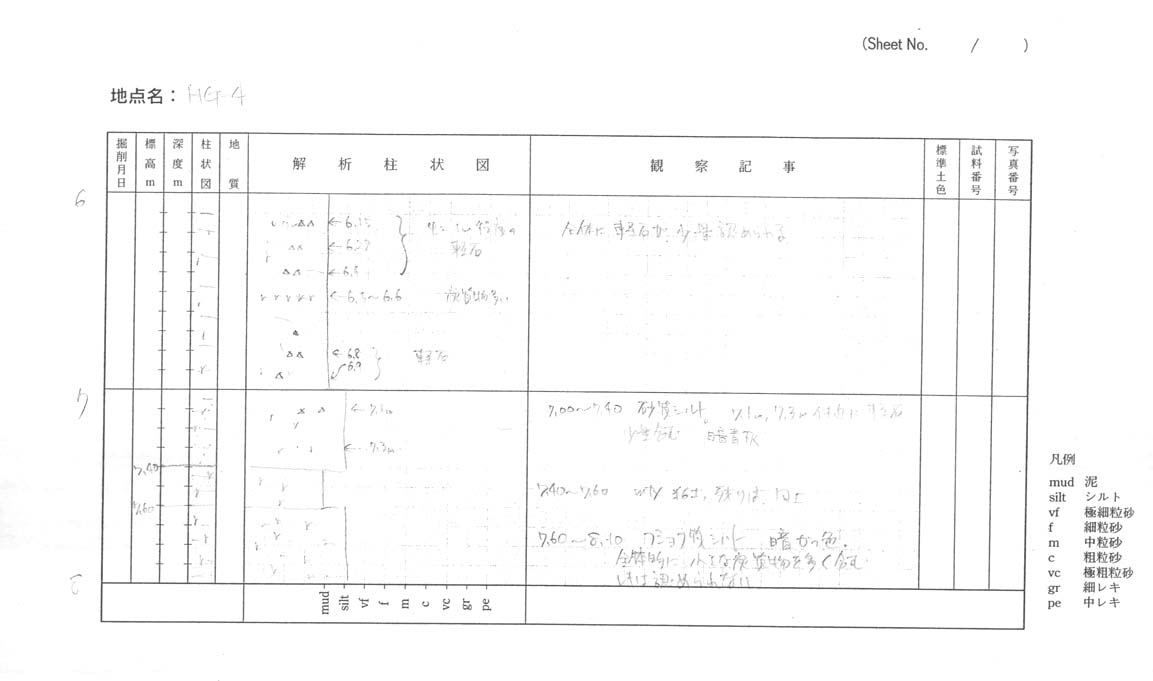 (Sheet No. / )
地点名： HG-4
掘削月日
標高m
深度m
柱状図
地質
解析柱状図
観察記事
標準土色
試料番号
写真番号
6
←6.15
←6.27
軽石
←6.4
←6.5〜6.6 炭質物多い
←6.8
6.9
軽石
全体に軽石が少量認められる
7
←7.1m
←7.3m
7.40
7.60
7.00〜7.40 砂質シルト。 7.1m, 7.3m付近に軽石
少量含む 暗青灰
7.40〜7.60 残りは 同上
7.60〜8.10 質シルト 暗かっ色.
全体的に小さな炭質物を多く含む
は認められない
8
mud
silt
vf
f
m
c
vc
gr
pe
凡例
mud 泥
silt シルト
vf 極細粒砂
f 細粒砂
m 中粒砂
c 粗粒砂
vc 極粗粒砂
gr 細レキ
pe 中レキ